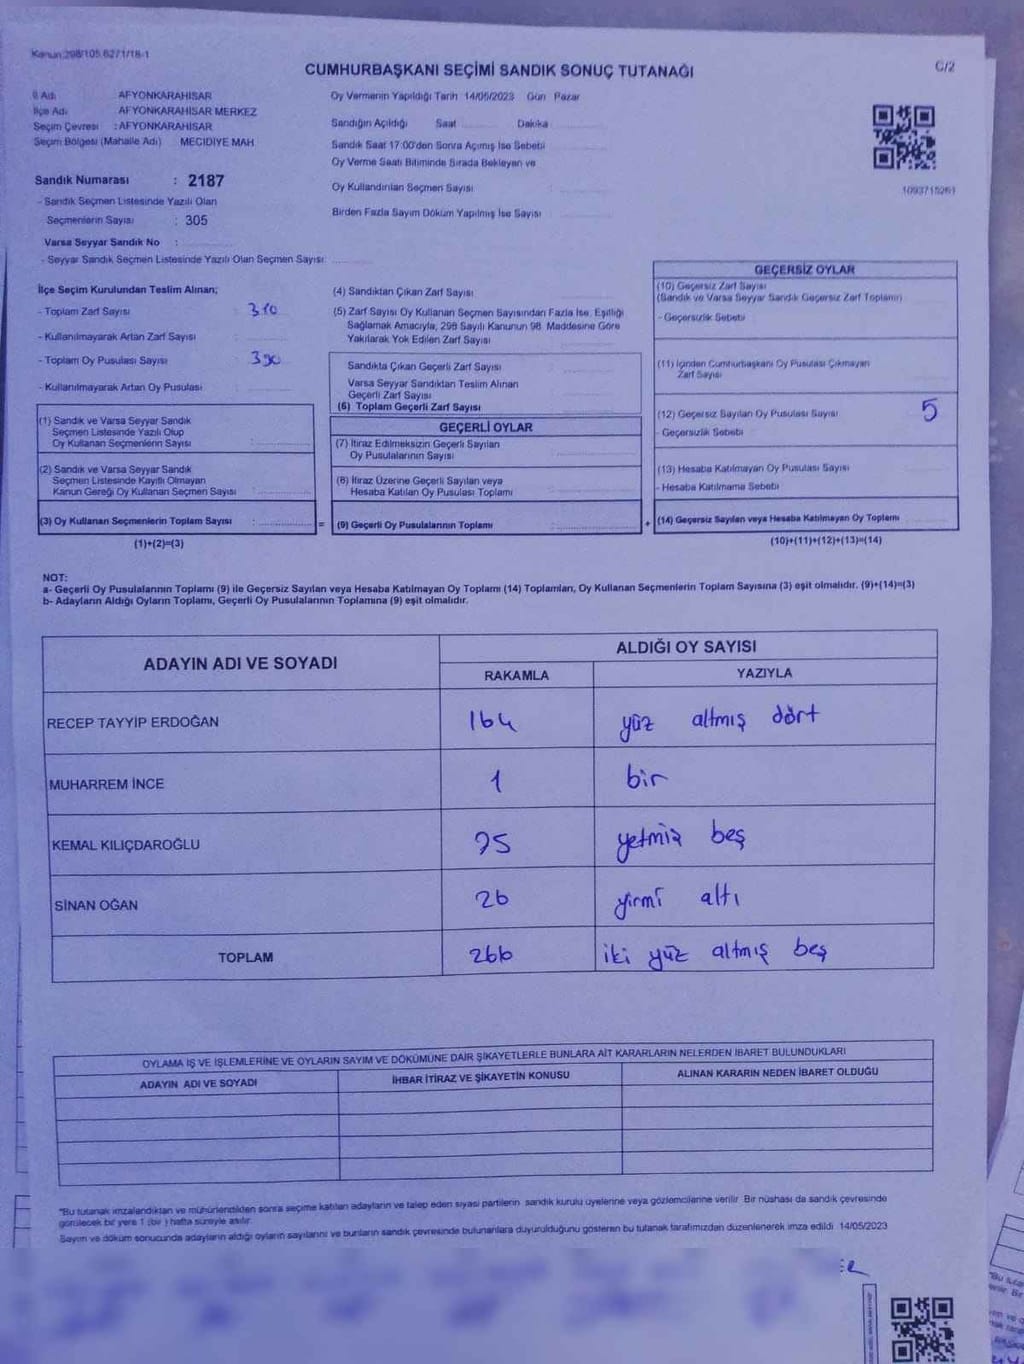 Kanun:298/105.62/1/18-1
CUMHURBAŞKANI SEÇİMİ SANDIK SONUÇ TUTANAĞI
C/2
İl Adı AFYONKARAHİSAR
İlçe Adı AFYONKARAHİSAR MERKEZ
Seçim Çevresi : AFYONKARAHİSAR
Seçim Bölgesi (Mahalle Adı) MECİDİYE MAH
Oy Vermenin Yapıldığı Tarih 14/05/2023 Gün Pazar
Sandığın Açıldığı Saat Dakika
Sandık Saat 17:00'den Sonra Açmış İse Sebebi
Oy Verme Saati Bitiminde Sırada Bekleyen ve
Oy Kullandırılan Seçmen Sayısı
Birden Fazla Sayım Döküm Yapılmış İse Sayısı
1093715261
Sandık Numarası : 2187
- Sandık Seçmen Listesinde Yazılı Olan
Seçmenlerin Sayısı : 305
Varsa Seyyar Sandık No :
- Seyyar Sandık Seçmen Listesinde Yazılı Olan Seçmen Sayısı:
İlçe Seçim Kurulundan Teslim Alınan;
- Toplam Zarf Sayısı : 310
- Kullanılmayarak Artan Zarf Sayısı :
- Toplam Oy Pusulası Sayısı : 390
- Kullanılmayarak Artan Oy Pusulası :
(1) Sandık ve Varsa Seyyar Sandık
Seçmen Listesinde Yazılı Olup
Oy Kullanan Seçmenlerin Sayısı :
(2) Sandık ve Varsa Seyyar Sandık
Seçmen Listesinde Kayıtlı Olmayan
Kanun Gereği Oy Kullanan Seçmen Sayısı :
(3) Oy Kullanan Seçmenlerin Toplam Sayısı : =
(1)+(2)=(3)
(4) Sandıktan Çıkan Zarf Sayısı
(5) Zarf Sayısı Oy Kullanan Seçmen Sayısından Fazla İse, Eşitliği
Sağlamak Amacıyla, 298 Sayılı Kanunun 98. Maddesine Göre
Yakılarak Yok Edilen Zarf Sayısı
Sandıkta Çıkan Geçerli Zarf Sayısı
Varsa Seyyar Sandıktan Teslim Alınan
Geçerli Zarf Sayısı
(6) Toplam Geçerli Zarf Sayısı
GEÇERLİ OYLAR
(7) İtiraz Edilmeksizin Geçerli Sayılan
Oy Pusulalarının Sayısı
(8) İtiraz Üzerine Geçerli Sayılan veya
Hesaba Katılan Oy Pusulası Toplamı
(9) Geçerli Oy Pusulalarının Toplamı +
GEÇERSİZ OYLAR
(10) Geçersiz Zarf Sayısı
(Sandık ve Varsa Seyyar Sandık Geçersiz Zarf Toplamı)
- Geçersizlik Sebebi
(11) İçinden Cumhurbaşkanı Oy Pusulası Çıkmayan
Zarf Sayısı
(12) Geçersiz Sayılan Oy Pusulası Sayısı 5
- Geçersizlik Sebebi
(13) Hesaba Katılmayan Oy Pusulası Sayısı
- Hesaba Katılmama Sebebi
(14) Geçersiz Sayılan veya Hesaba Katılmayan Oy Toplamı
(10)+(11)+(12)+(13)=(14)
NOT:
a- Geçerli Oy Pusulalarının Toplamı (9) ile Geçersiz Sayılan veya Hesaba Katılmayan Oy Toplamı (14) Toplamları, Oy Kullanan Seçmenlerin Toplam Sayısına (3) eşit olmalıdır. (9)+(14)=(3)
b- Adayların Aldığı Oyların Toplamı, Geçerli Oy Pusulalarının Toplamına (9) eşit olmalıdır.
ADAYIN ADI VE SOYADI ALDIĞI OY SAYISI
RAKAMLA YAZIYLA
RECEP TAYYİP ERDOĞAN 164 yüz altmış dört
MUHARREM İNCE 1 bir
KEMAL KILIÇDAROĞLU 75 yetmiş beş
SİNAN OĞAN 26 yirmi altı
TOPLAM 266 iki yüz altmış beş
OYLAMA İŞ VE İŞLEMLERİNE VE OYLARIN SAYIM VE DÖKÜMÜNE DAİR ŞİKAYETLERLE BUNLARA AİT KARARLARIN NELERDEN İBARET BULUNDUKLARI
ADAYIN ADI VE SOYADI İHBAR İTİRAZ VE ŞİKAYETİN KONUSU ALINAN KARARIN NEDEN İBARET OLDUĞU
"Bu tutanak imzalandıktan ve mühürlendikten sonra seçime katılan adayların ve talep eden siyasi partilerin sandık kurulu üyelerine veya gözlemcilerine verilir. Bir nüshası da sandık çevresinde
görülecek bir yere 1 (bir) hafta süreyle asılır.
Sayım ve döküm sonucunda adayların aldığı oyların sayılarını ve bunların sandık çevresinde bulunanlara duyurulduğunu gösteren bu tutanak tarafımızdan düzenlenerek imza edildi 14/05/2023